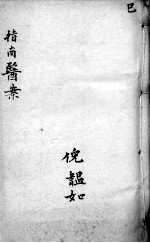 巳
指南醫案
倪韞如